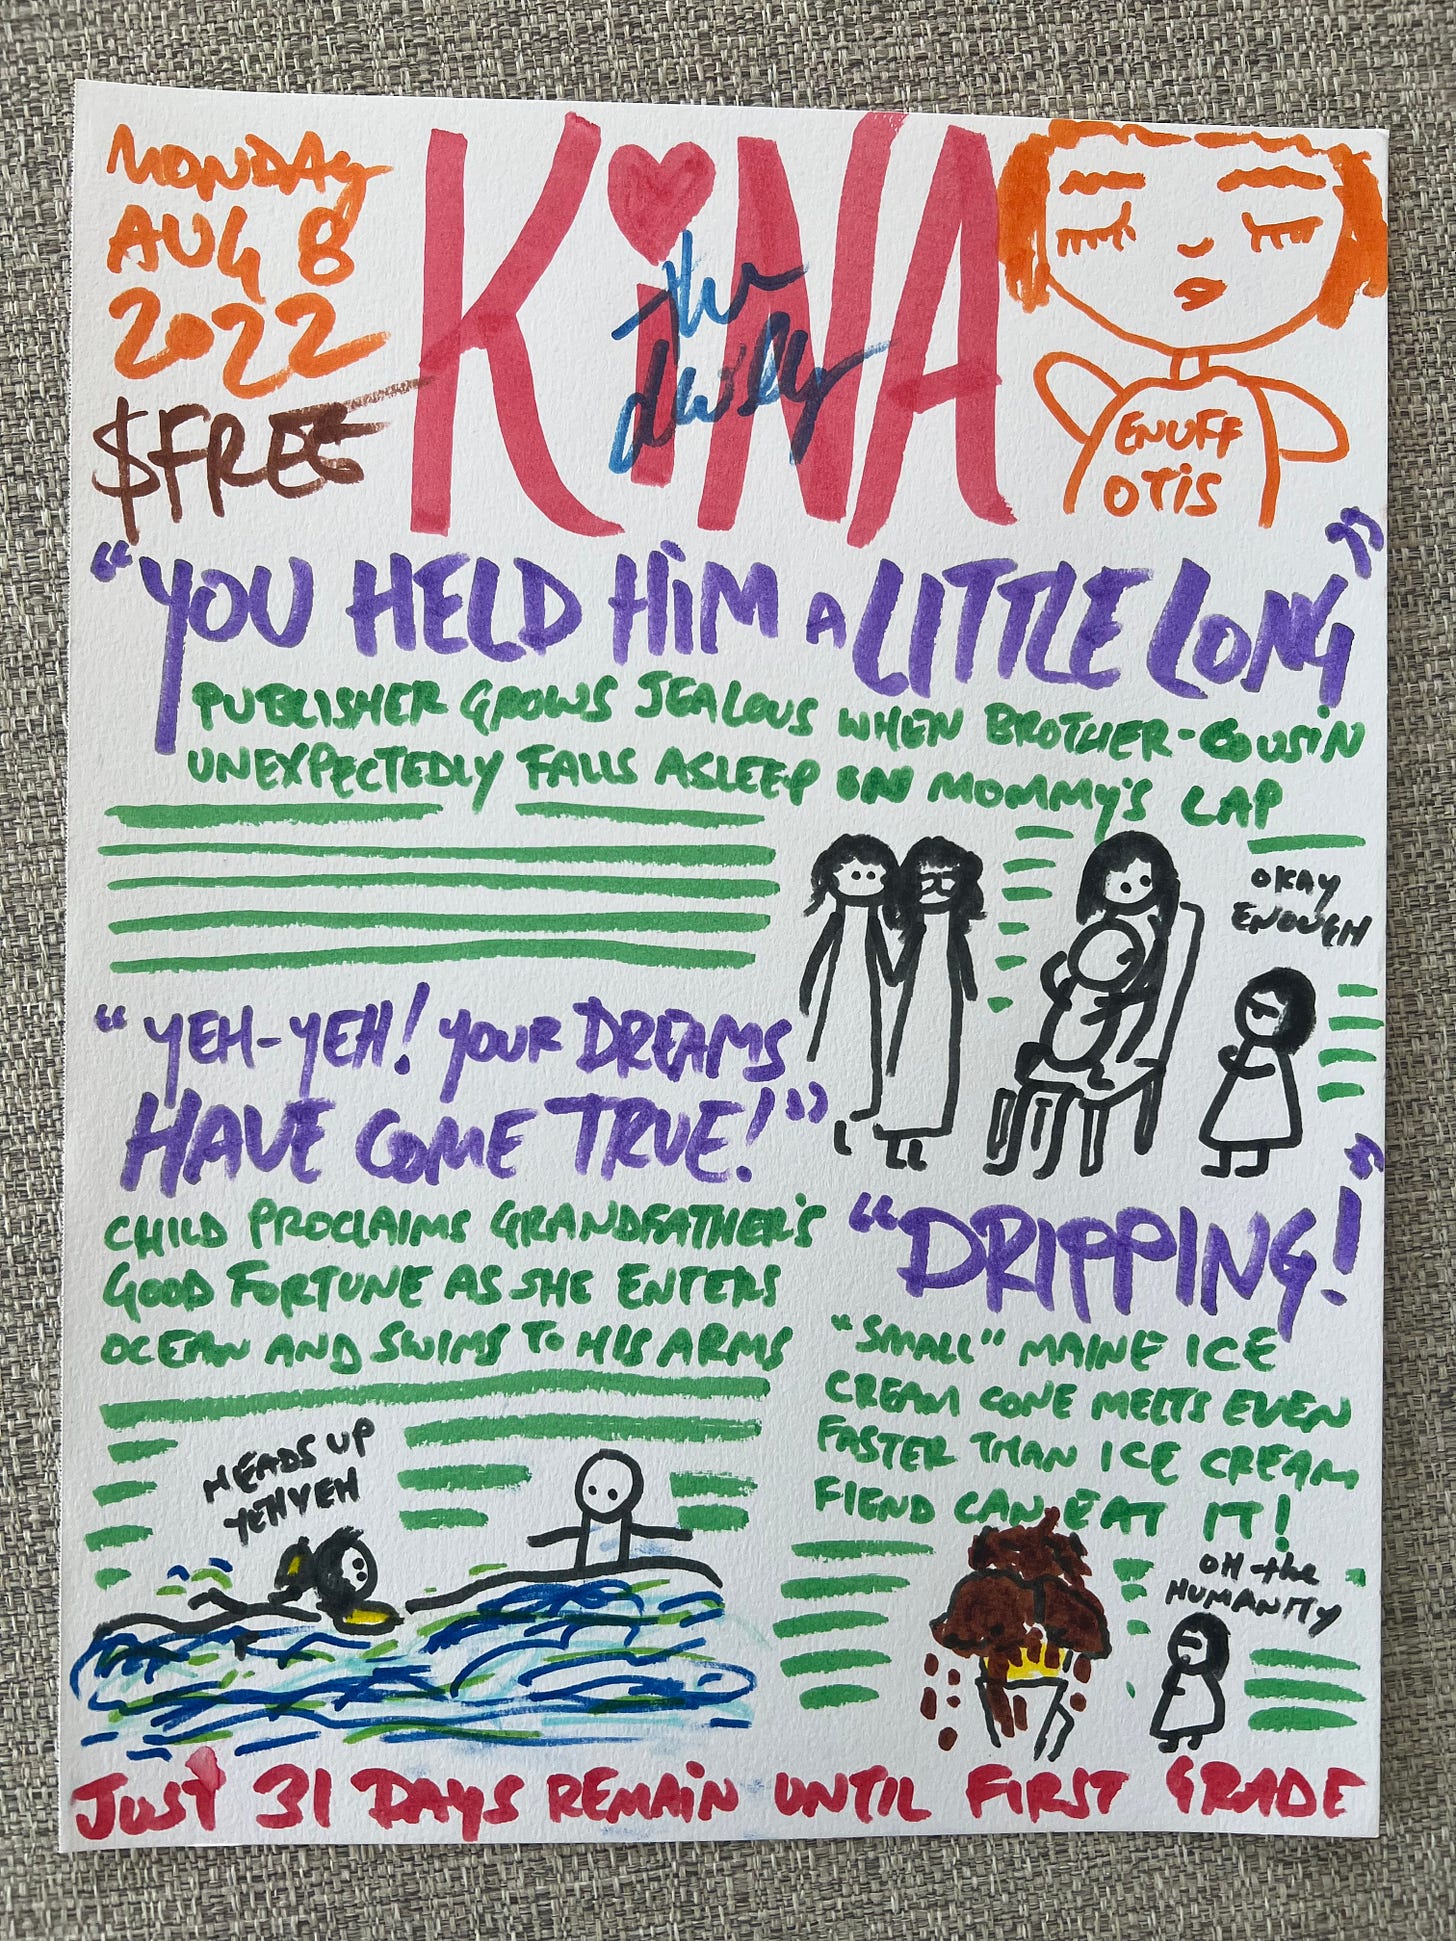 MONDAY
AUG 8
2022
$FREE
the
daily
KiNA
ENUFF
OTiS
"YOU HELD HiM A LITTLE LONG"
PUBLISHER GROWS JEALOUS WHEN BROTHER-COUSiN
UNEXPECTEDLY FALLS ASLEEP ON MOMMY'S LAP
OKAY
ENOUGH
"YEH-YEH! YOUR DREAMS
HAVE COME TRUE!"
CHILD PROCLAIMS GRANDFATHER'S
GOOD FORTUNE AS SHE ENTERS
OCEAN AND SWIMS TO HIS ARMS
HEADS UP
YEHYEH
"DRIPPING!"
"SMALL" MAINE ICE
CREAM CONE MELTS EVEN
FASTER THAN ICE CREAM
FIEND CAN EAT IT!
OH the
HUMANITY
JUST 31 DAYS REMAiN UNTIL FIRST GRADE